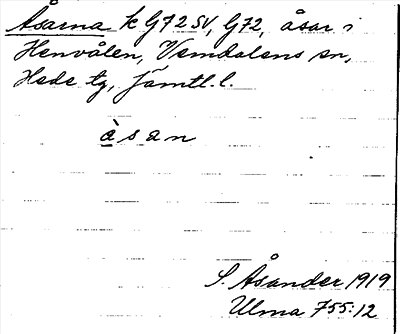 Åsarna k G72 SV, G72, åsar i
Henvålen, Vemdalens sn,
Hede tg, Jämtl. l.
àsan
S. Åsander 1919
Ulma 755:12